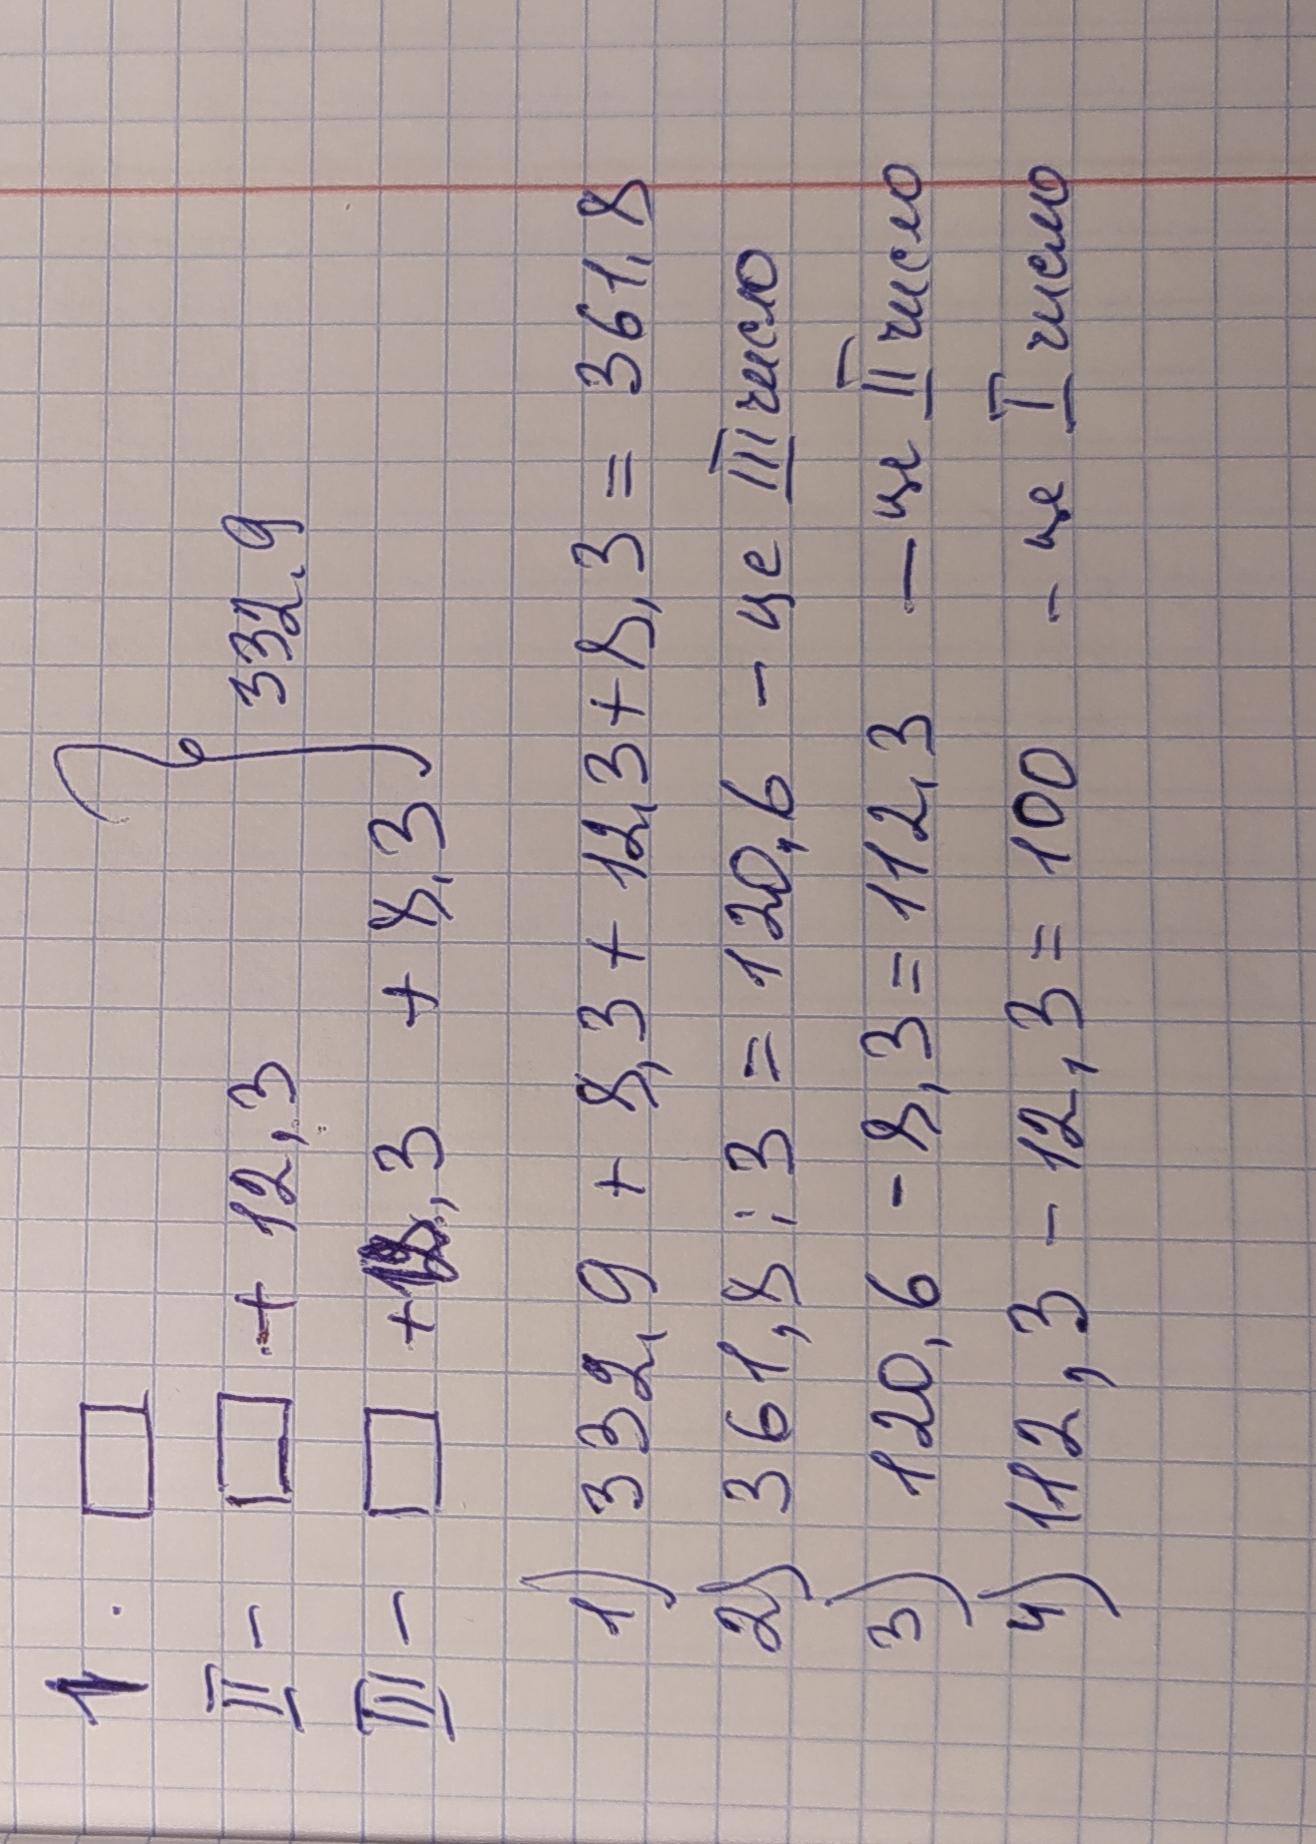 I - □
II - □ + 12,3
III - □ + 12,3 + 8,3
332,9
1) 332,9 + 8,3 + 12,3 + 8,3 = 361,8
2) 361,8 : 3 = 120,6 - це III число
3) 120,6 - 8,3 = 112,3 - це II число
4) 112,3 - 12,3 = 100 - це I число